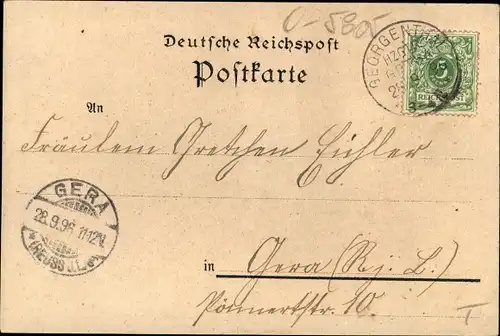 0-5805
Deutsche Reichspost
Postkarte
GEORGENTHAL
HZGTH
5
REICHSPOST
An
Fräulein Gretchen Eichler
GERA
28.9.96. 11-12V.
* (REUSS J.L.) *
in Gera (Rj. L.)
10.
I